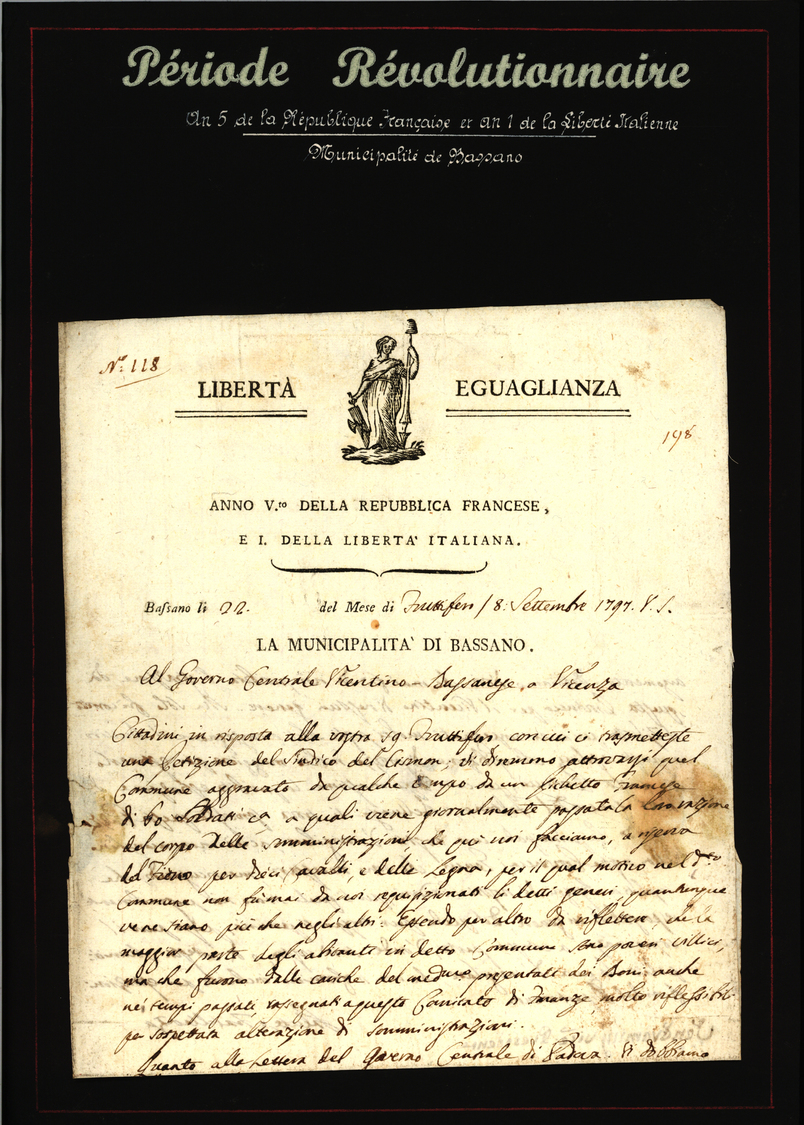 Période Révolutionnaire
An 5 de la République Française et an 1 de la Liberté Italienne
Municipalité de Bassano
N.º 118
LIBERTÀ EGUAGLIANZA
198
ANNO V.to DELLA REPUBBLICA FRANCESE,
E I. DELLA LIBERTA' ITALIANA.
Bassano li 22. del Mese di Fruttifero / 8: Settembre 1797. V. S.
LA MUNICIPALITA' DI BASSANO.
Al Governo Centrale Vicentino-Bassanese a Vicenza
Cittadini, in risposta alla vostra 19 Fruttifero con cui ci trasmetteste
una Petizione del Sindico del Cismon, vi diremmo attrovarsi quel
Commune aggravato da qualche tempo da un Picchetto Francese
di 60 Soldati a quali viene giornalmente passata la
del corpo delle somministrazioni, che qui noi facciamo, a riserva
del Fieno per dieci Cavalli, e delle Legna, per il qual motivo nel d.to
Commune non furono da noi requisizionati li detti generi quantunque
ve ne siano più che negli altri. Essendo per altro da riflettere, che la
maggior parte degli abitanti in detto Commune sono poveri villici,
ma che furono dalle cariche del med.mo presentati dei Boni anche
nei tempi passati, rassegnati a questo Comitato di Finanze, molto riflessibili
per sospettata alterazione di somministrazioni.
Quanto alla Lettera del Governo Centrale di Padova. Vi dobbiamo